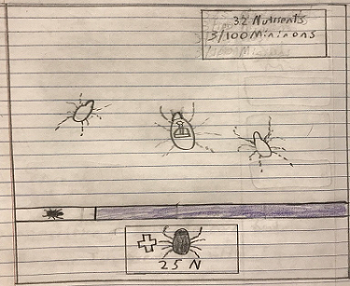 32 Nutrients
3/100 Minions
25 N